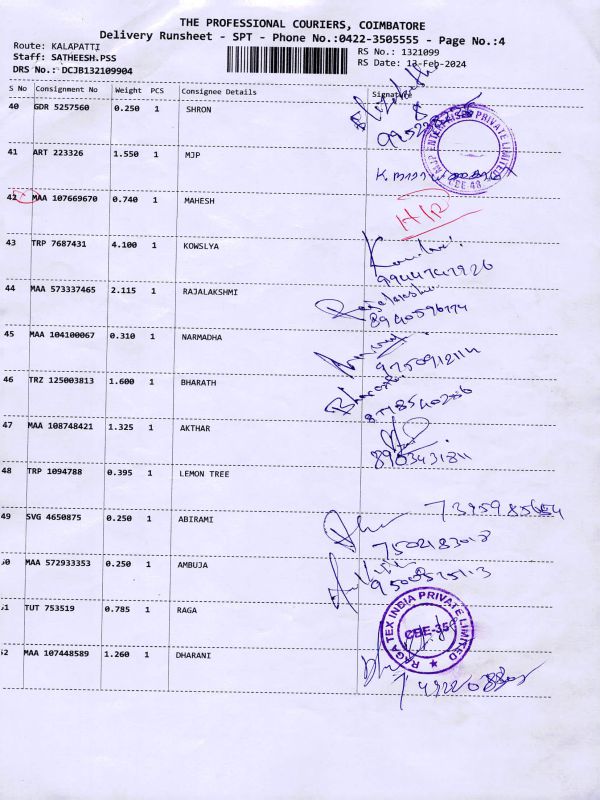 THE PROFESSIONAL COURIERS, COIMBATORE
Delivery Runsheet - SPT - Phone No.:0422-3505555 - Page No.:4
Route: KALAPATTI
Staff: SATHEESH.PSS
DRS No.: DCJB132109904
RS No.: 1321099
RS Date: 13-Feb-2024
S No Consignment No Weight PCS Consignee Details Signature
40 GDR 5257560 0.250 1 SHRON
41 ART 223326 1.550 1 MJP
MJP ENTERPRISES PRIVATE LIMITED
CBE-48
42 MAA 107669670 0.740 1 MAHESH
43 TRP 7687431 4.100 1 KOWSLYA
9944747926
44 MAA 573337465 2.115 1 RAJALAKSHMI
Rajalakshmi
8940596174
45 MAA 104100067 0.310 1 NARMADHA
9750912114
46 TRZ 125003813 1.600 1 BHARATH
47 MAA 108748421 1.325 1 AKTHAR
8903431811
48 TRP 1094788 0.395 1 LEMON TREE
49 SVG 4650875 0.250 1 ABIRAMI
7502183018
50 MAA 572933353 0.250 1 AMBUJA
51 TUT 753519 0.785 1 RAGA
RAGA TEX INDIA PRIVATE LIMITED
CBE-35
52 MAA 107448589 1.260 1 DHARANI